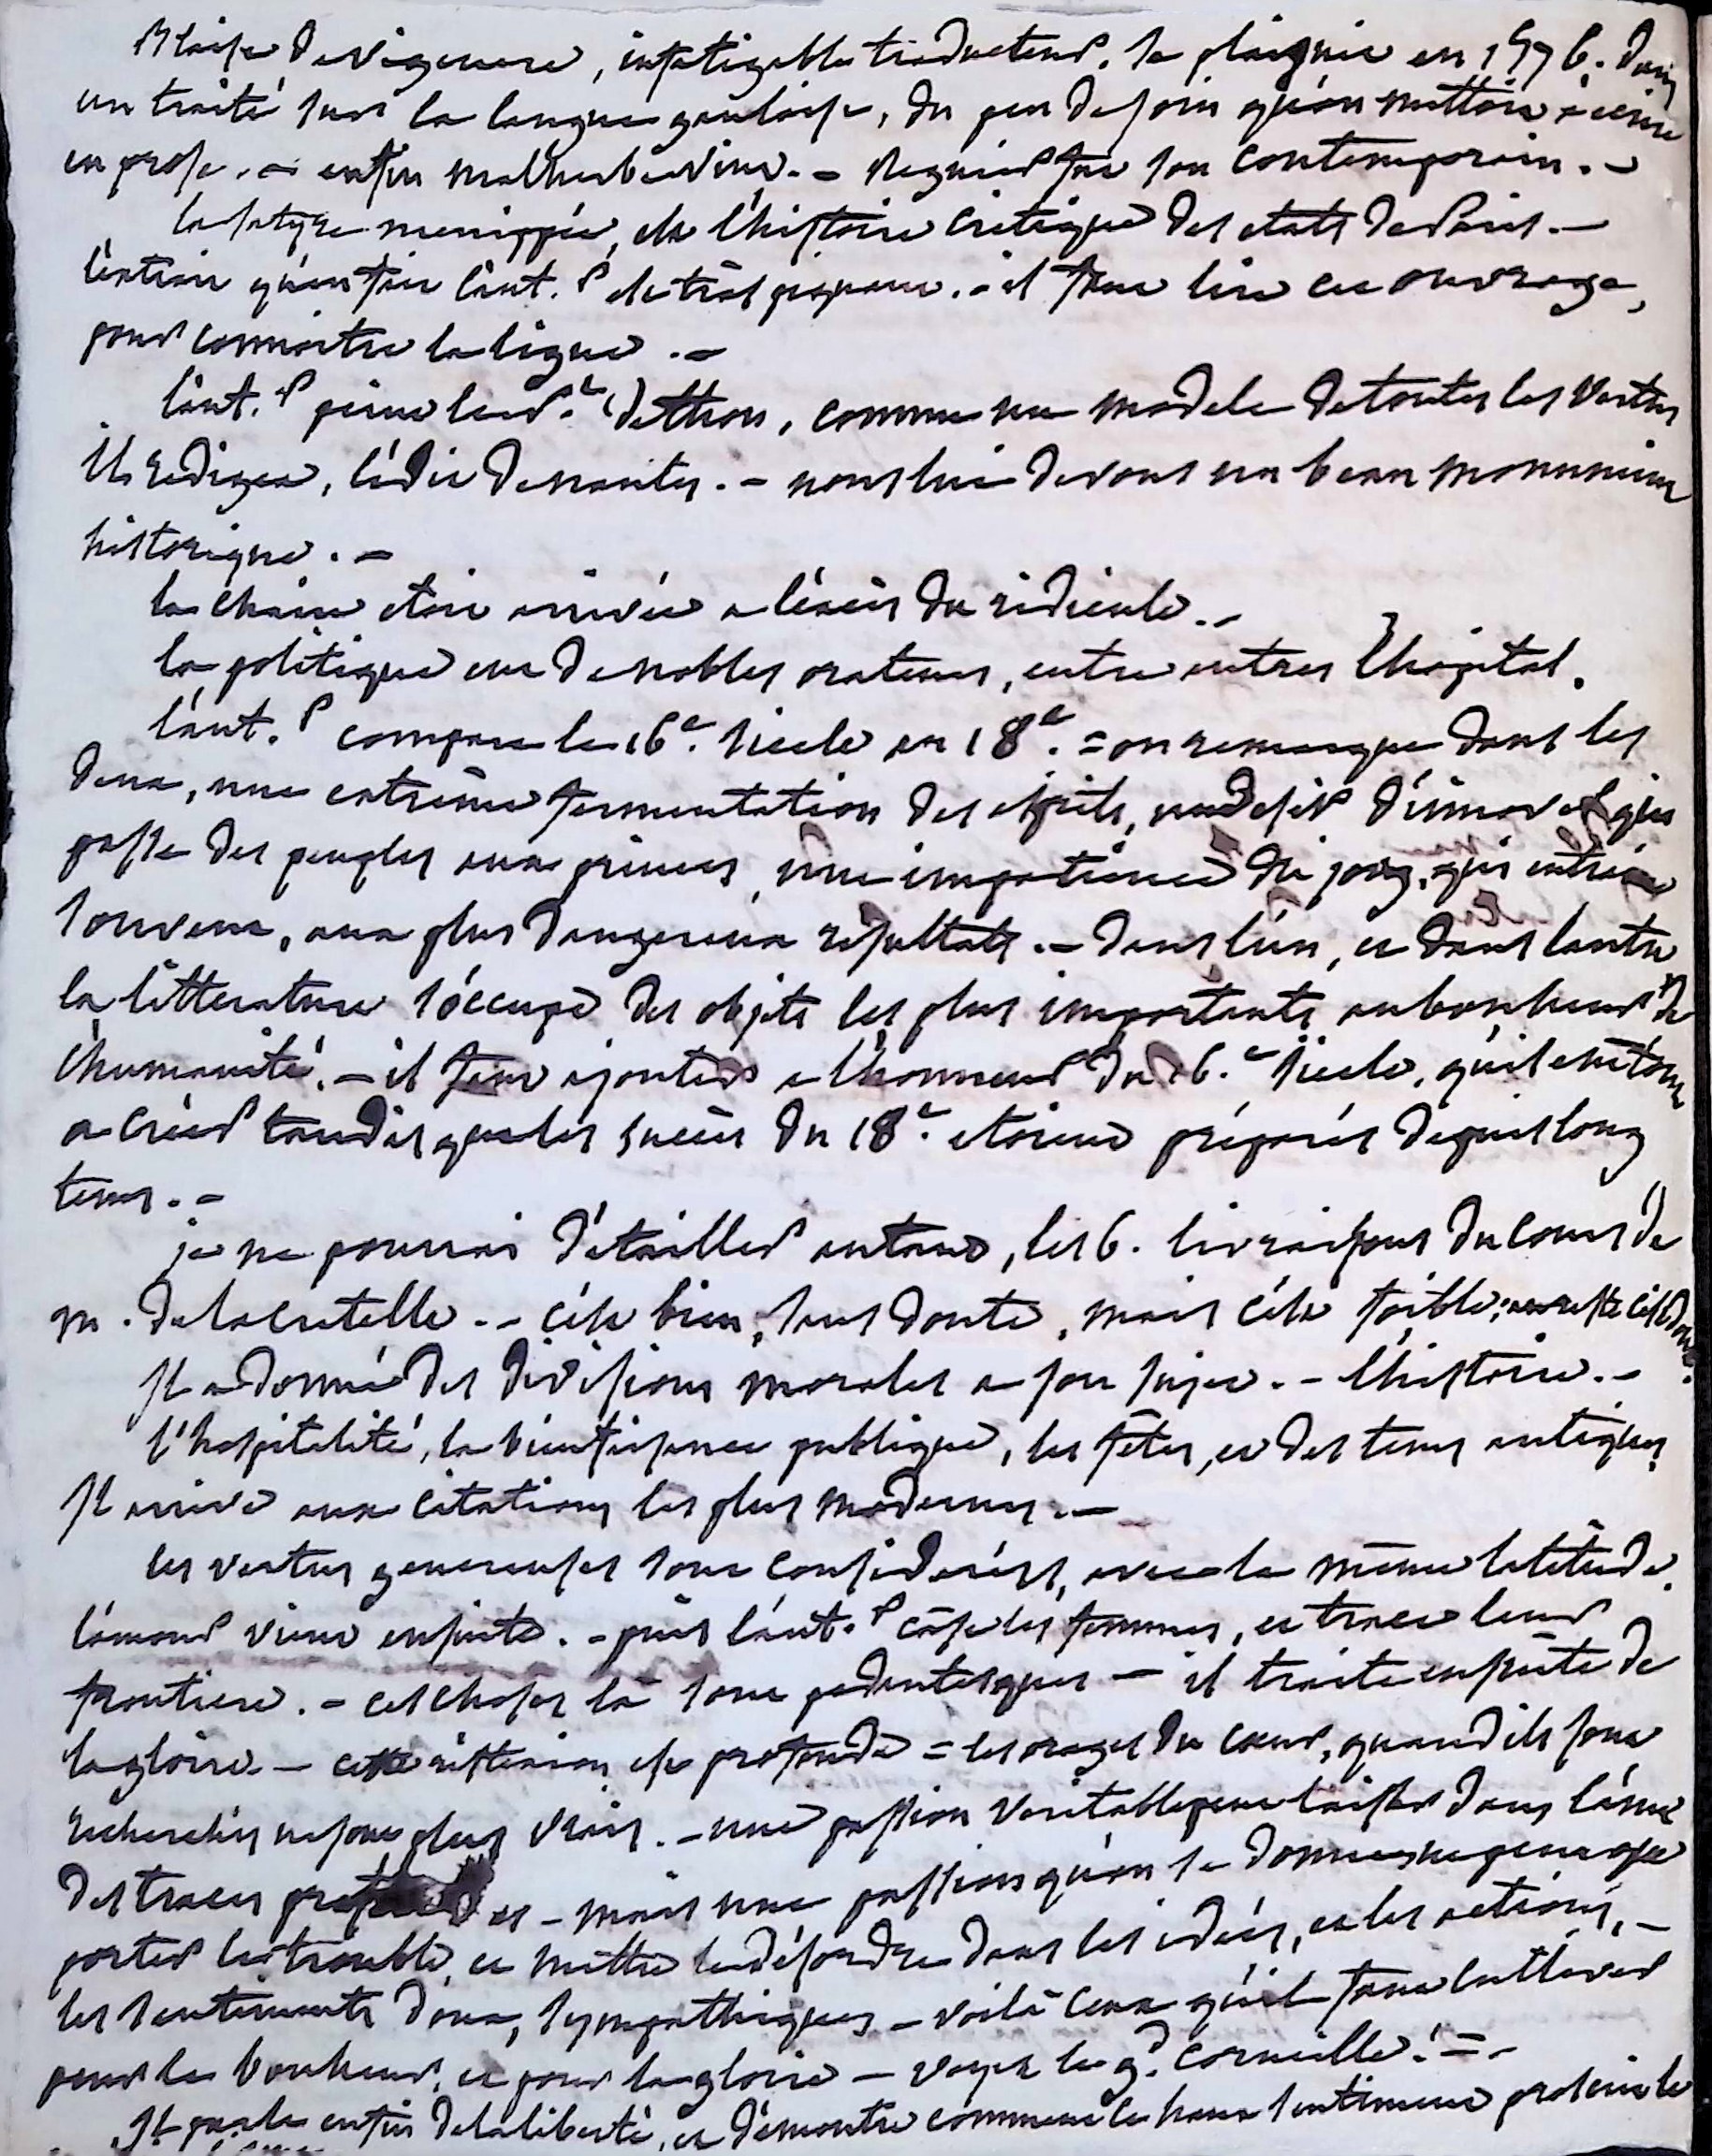 Blaise de Vigenere, infatigable traducteur, se plaignit en 1576. dans
un traité sur la langue gauloise, du peu de soin qu'on mettoit a ecrire
en prose. – enfin malherbe vint. – Regnier fut son contemporain. –
la satyre menippée, est l'histoire critique des etats de Paris. –
l'extrait qu'en fait l'aut.r est très piquant. – il faut lire cet ouvrage,
pour connoitre la ligue. –
l'aut.r peint le p.t de thou, comme un modele de toutes les vertus
Il redigea, l'édit de nantes. – nous lui devons un beau monument
historique. –
la chaire etoit arrivée a l'excès du ridicule. –
la politique eut de nobles orateurs, entre autres l'hopital.
l'aut.r compare le 16e. siecle au 18e. = on remarque dans les
deux, une extrême fermentation des esprits, un desir d'innover qui
passe des peuples aux princes, une impatience du joug, qui entraine
souvent, aux plus dangereux résultats. – dans l'un, et dans l'autre
la littérature s'occupe des objets les plus importants au bonheur de
l'humanité. – il faut ajouter a l'honneur du 16.e siecle, qu'il eut tout
a créer tandis que les succès du 18e. etoient préparés depuis long
tems. –
je ne pourrai détailler autant, les 6. livraisons du cours de
m. de lacretelle. – c'est bien, sans doute, mais c'est foible; au reste c'est doux.
Il a donné des divisions morales a son sujet. – l'histoire. –
l'hospitalité, la bienfaisance publique, les fêtes, et des tems antiques,
Il arrive aux citations les plus modernes. –
les vertus genereuses sont considerées, avec la même latitude.
l'amour vient ensuite. – puis l'aut.r case les femmes, et trace leur
frontiere. – ces choses là sont pedantesques – il traite ensuite de
la gloire. – cette réflexion est profonde = les orages du cœur, quand ils sont
recherchés ne sont plus vrais. – une passion veritable peut laisser dans l'ame
des traces profondes – mais une passion qu'on se donne ne peut que
porter le trouble, et mettre le désordre dans les idées, et les actions, –
les sentiments doux, sympathiques – voilà ceux qu'il faut cultiver
pour le bonheur, et pour la gloire – voyez le gd. corneille! = –
Il parle enfin de la liberté, et démontre comment le haut sentiment